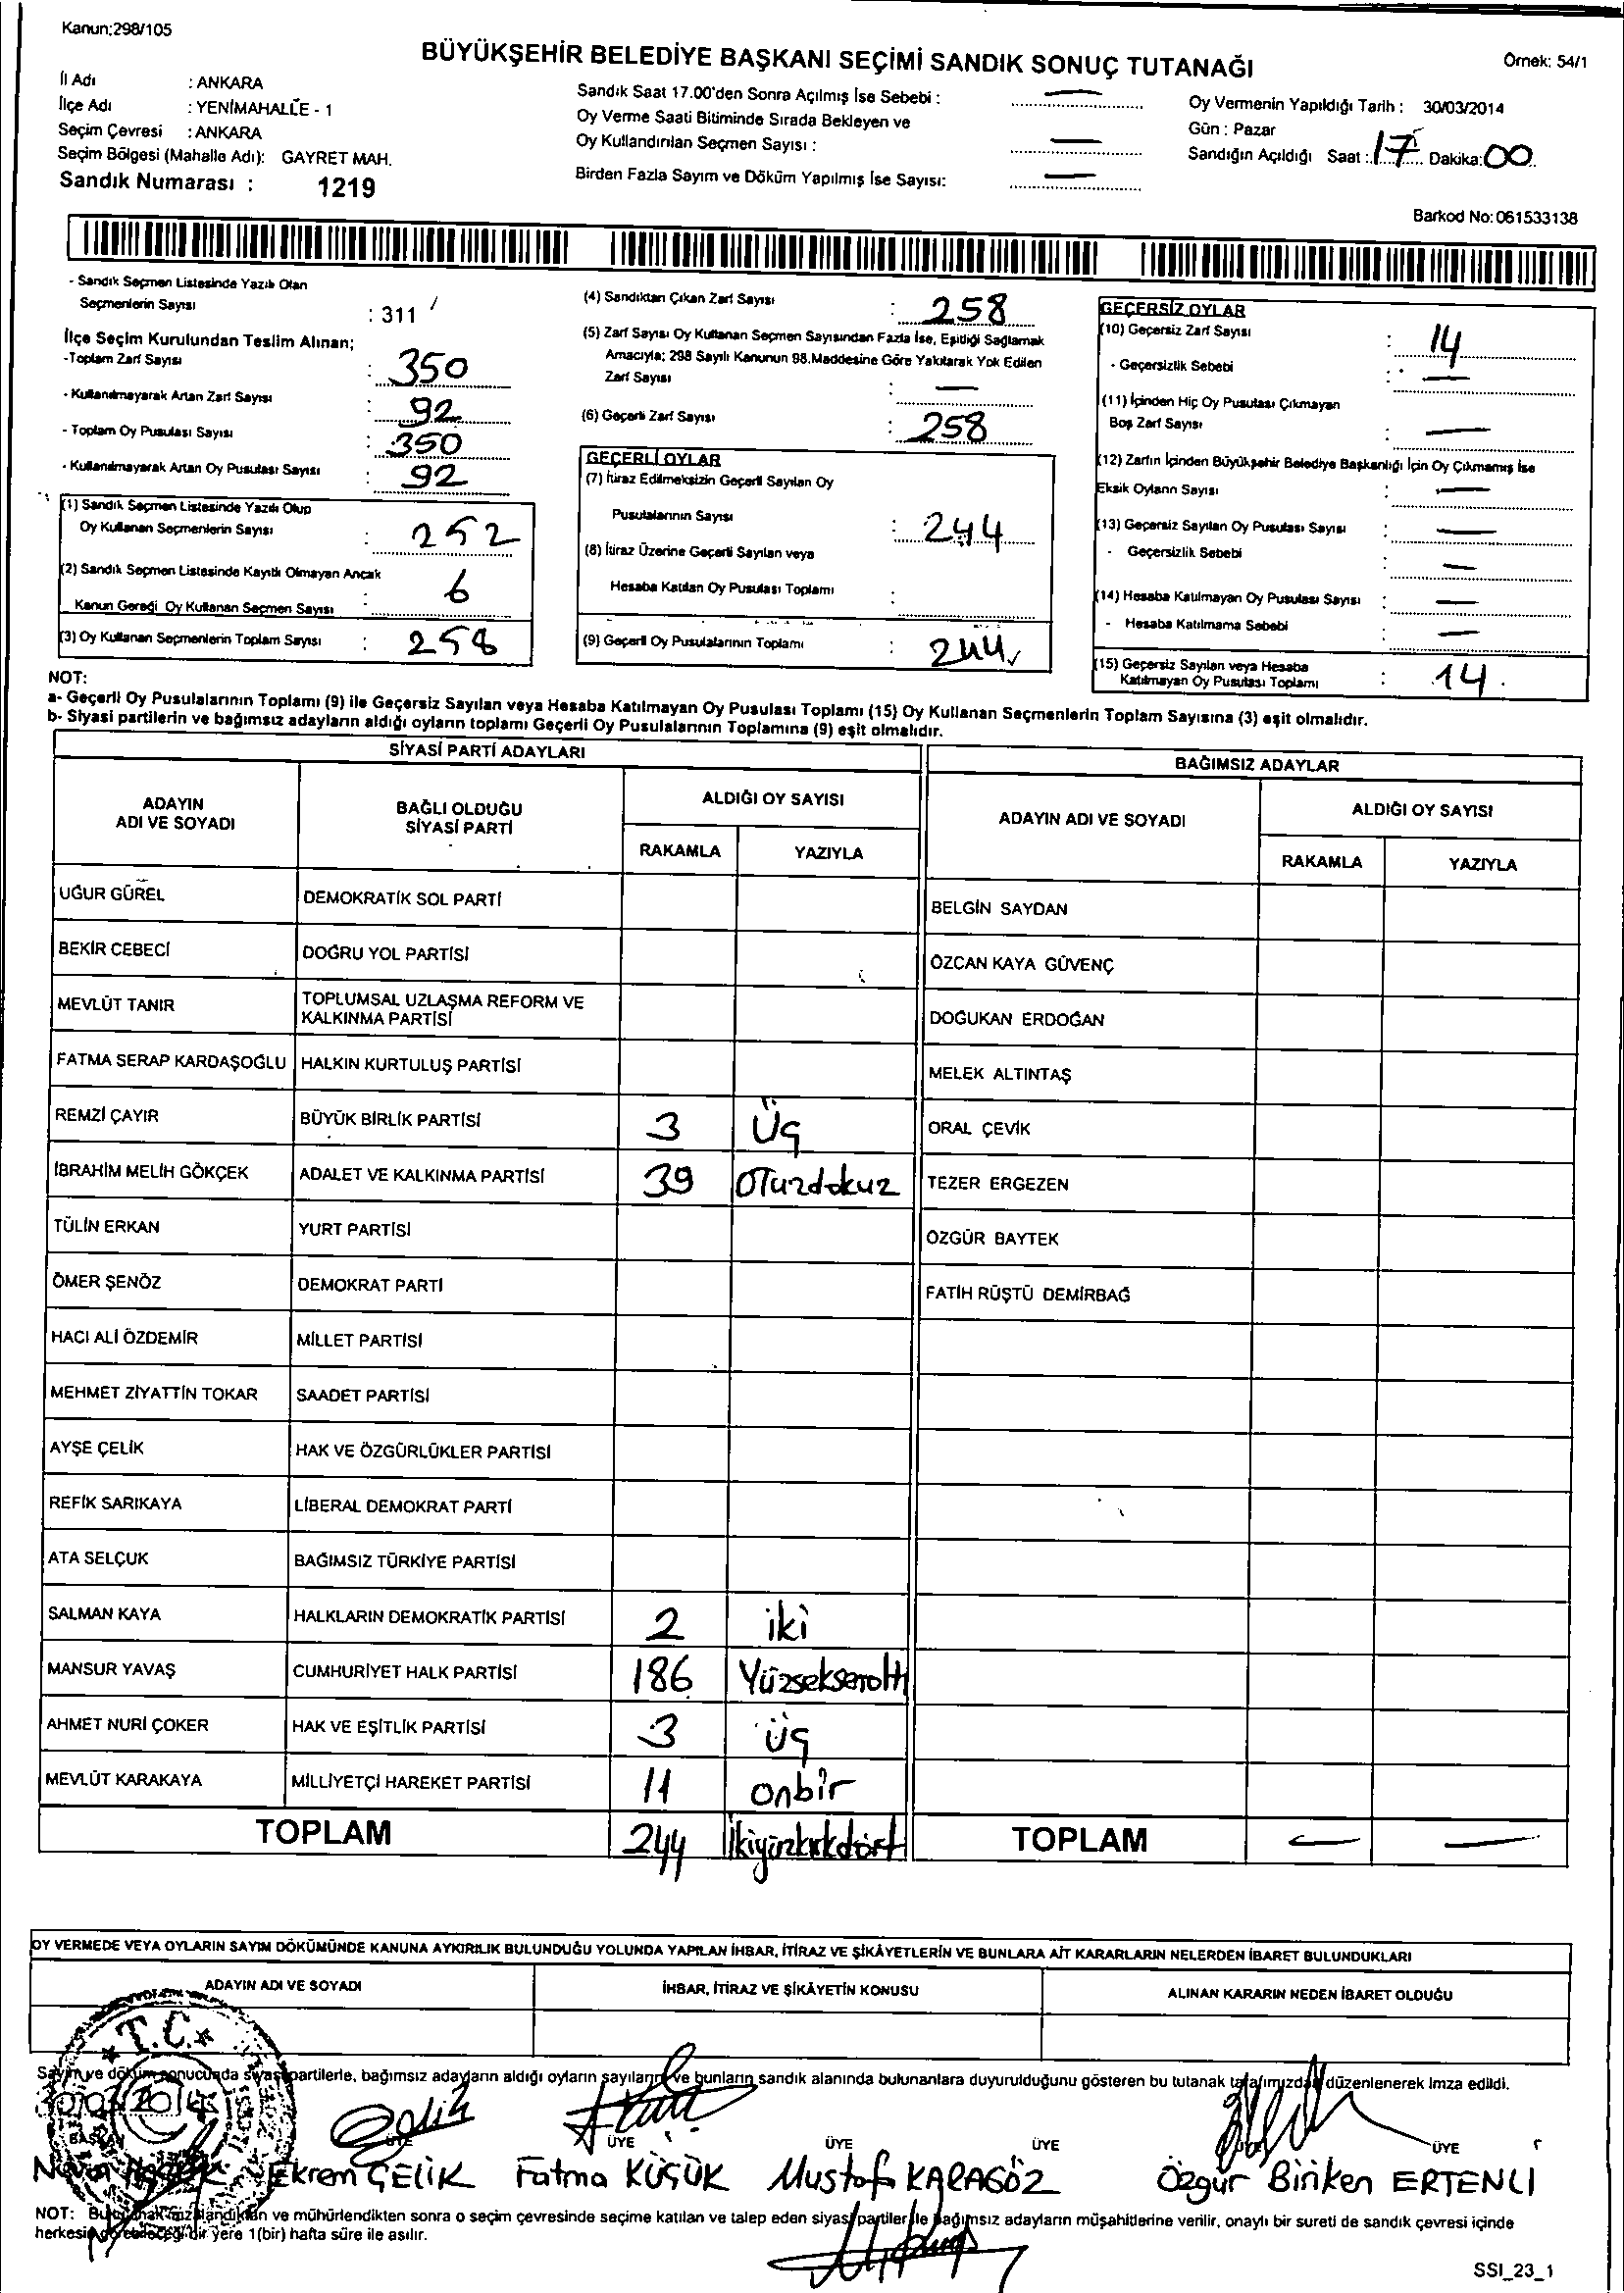 Kanun:298/105
BÜYÜKŞEHİR BELEDİYE BAŞKANI SEÇİMİ SANDIK SONUÇ TUTANAĞI
Örnek: 54/1
İl Adı : ANKARA
İlçe Adı : YENİMAHALLE - 1
Seçim Çevresi : ANKARA
Seçim Bölgesi (Mahalle Adı): GAYRET MAH.
Sandık Numarası : 1219
Sandık Saat 17.00'den Sonra Açılmış İse Sebebi : —
Oy Verme Saati Bitiminde Sırada Bekleyen ve
Oy Kullandırılan Seçmen Sayısı : —
Birden Fazla Sayım ve Döküm Yapılmış İse Sayısı: —
Oy Vermenin Yapıldığı Tarih : 30/03/2014
Gün : Pazar
Sandığın Açıldığı Saat : 17 Dakika: 00
Barkod No: 061533138
- Sandık Seçmen Listesinde Yazılı Olan
Seçmenlerin Sayısı : 311
İlçe Seçim Kurulundan Teslim Alınan;
-Toplam Zarf Sayısı : 350
- Kullanılmayarak Artan Zarf Sayısı : 92
- Toplam Oy Pusulası Sayısı : 350
- Kullanılmayarak Artan Oy Pusulası Sayısı : 92
(1) Sandık Seçmen Listesinde Yazılı Olup
Oy Kullanan Seçmenlerin Sayısı : 252
(2) Sandık Seçmen Listesinde Kayıtlı Olmayan Ancak
Kanun Gereği Oy Kullanan Seçmen Sayısı : 6
(3) Oy Kullanan Seçmenlerin Toplam Sayısı : 258
(4) Sandıktan Çıkan Zarf Sayısı : 258
(5) Zarf Sayısı Oy Kullanan Seçmen Sayısından Fazla İse, Eşitliği Sağlamak
Amacıyla; 298 Sayılı Kanunun 98.Maddesine Göre Yakılarak Yok Edilen
Zarf Sayısı : —
(6) Geçerli Zarf Sayısı : 258
GEÇERLİ OYLAR
(7) İtiraz Edilmeksizin Geçerli Sayılan Oy
Pusulalarının Sayısı : 244
(8) İtiraz Üzerine Geçerli Sayılan veya
Hesaba Katılan Oy Pusulası Toplamı :
(9) Geçerli Oy Pusulalarının Toplamı : 244
GEÇERSİZ OYLAR
(10) Geçersiz Zarf Sayısı : 14
- Geçersizlik Sebebi : —
(11) İçinden Hiç Oy Pusulası Çıkmayan
Boş Zarf Sayısı : —
(12) Zarfın İçinden Büyükşehir Belediye Başkanlığı İçin Oy Çıkmamış İse
Eksik Oyların Sayısı : —
(13) Geçersiz Sayılan Oy Pusulası Sayısı : —
- Geçersizlik Sebebi : —
(14) Hesaba Katılmayan Oy Pusulası Sayısı : —
- Hesaba Katılmama Sebebi : —
(15) Geçersiz Sayılan veya Hesaba
Katılmayan Oy Pusulası Toplamı : 14
NOT:
a- Geçerli Oy Pusulalarının Toplamı (9) ile Geçersiz Sayılan veya Hesaba Katılmayan Oy Pusulası Toplamı (15) Oy Kullanan Seçmenlerin Toplam Sayısına (3) eşit olmalıdır.
b- Siyasi partilerin ve bağımsız adayların aldığı oyların toplamı Geçerli Oy Pusulalarının Toplamına (9) eşit olmalıdır.
SİYASİ PARTİ ADAYLARI
BAĞIMSIZ ADAYLAR
ADAYIN ADI VE SOYADI
BAĞLI OLDUĞU SİYASİ PARTİ
ALDIĞI OY SAYISI
RAKAMLA YAZIYLA
ADAYIN ADI VE SOYADI
ALDIĞI OY SAYISI
RAKAMLA YAZIYLA
UĞUR GÜREL DEMOKRATİK SOL PARTİ
BELGİN SAYDAN
BEKİR CEBECİ DOĞRU YOL PARTİSİ
ÖZCAN KAYA GÜVENÇ
MEVLÜT TANIR TOPLUMSAL UZLAŞMA REFORM VE KALKINMA PARTİSİ
DOĞUKAN ERDOĞAN
FATMA SERAP KARDAŞOĞLU HALKIN KURTULUŞ PARTİSİ
MELEK ALTINTAŞ
REMZİ ÇAYIR BÜYÜK BİRLİK PARTİSİ 3 Üç
ORAL ÇEVİK
İBRAHİM MELİH GÖKÇEK ADALET VE KALKINMA PARTİSİ 39 OTuzdokuz
TEZER ERGEZEN
TÜLİN ERKAN YURT PARTİSİ
ÖZGÜR BAYTEK
ÖMER ŞENÖZ DEMOKRAT PARTİ
FATİH RÜŞTÜ DEMİRBAĞ
HACI ALİ ÖZDEMİR MİLLET PARTİSİ
MEHMET ZİYATTİN TOKAR SAADET PARTİSİ
AYŞE ÇELİK HAK VE ÖZGÜRLÜKLER PARTİSİ
REFİK SARIKAYA LİBERAL DEMOKRAT PARTİ
ATA SELÇUK BAĞIMSIZ TÜRKİYE PARTİSİ
SALMAN KAYA HALKLARIN DEMOKRATİK PARTİSİ 2 iki
MANSUR YAVAŞ CUMHURİYET HALK PARTİSİ 186 Yüzseksenaltı
AHMET NURİ ÇOKER HAK VE EŞİTLİK PARTİSİ 3 üç
MEVLÜT KARAKAYA MİLLİYETÇİ HAREKET PARTİSİ 11 onbir
TOPLAM 244 İkiyüzkırkdört
TOPLAM — —
OY VERMEDE VEYA OYLARIN SAYIM DÖKÜMÜNDE KANUNA AYKIRILIK BULUNDUĞU YOLUNDA YAPILAN İHBAR, İTİRAZ VE ŞİKÂYETLERİN VE BUNLARA AİT KARARLARIN NELERDEN İBARET BULUNDUKLARI
ADAYIN ADI VE SOYADI
İHBAR, İTİRAZ VE ŞİKÂYETİN KONUSU
ALINAN KARARIN NEDEN İBARET OLDUĞU
T.C.
Sayım ve döküm sonucunda siyasi partilerle, bağımsız adayların aldığı oyların sayılarını ve bunların sandık alanında bulunanlara duyurulduğunu gösteren bu tutanak tarafımızdan düzenlenerek imza edildi.
30/03/2014
BAŞKAN ÜYE ÜYE ÜYE ÜYE ÜYE ÜYE
Ekrem ÇELİK Fatma KÜÇÜK Mustafa KARAGÖZ Özgür Biriken ERTENLİ
NOT: Bu tutanak imzalandıktan ve mühürlendikten sonra o seçim çevresinde seçime katılan ve talep eden siyasi partiler ile bağımsız adayların müşahitlerine verilir, onaylı bir sureti de sandık çevresi içinde
herkesin görebileceği bir yere 1(bir) hafta süre ile asılır.
SSI_23_1